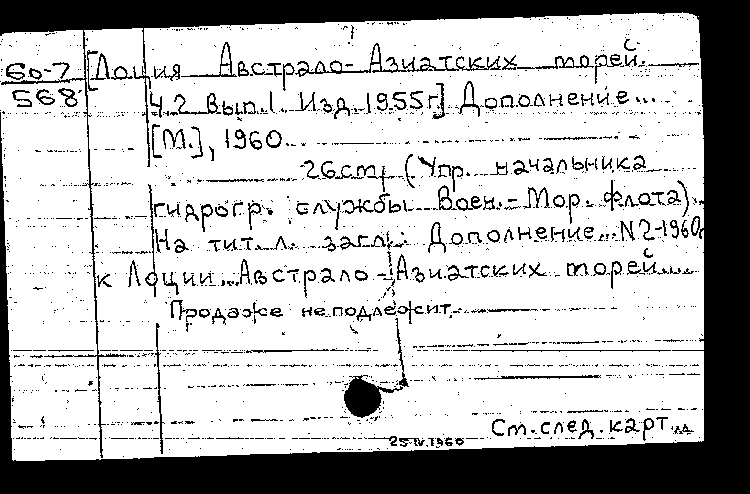 60-7
568
[Лоция Австрало-Азиатских морей.
Ч.2 Вып.1. Изд. 1955г.] Дополнение...
[М.], 1960.
26 стр. (Упр. начальника
гидрогр. службы Воен.-Мор. флота).
На тит. л. загл.: Дополнение...N2-1960г.
к Лоции...Австрало-Азиатских морей....
Продаже не подлежит.
См. след. карт.
25.IV.1960